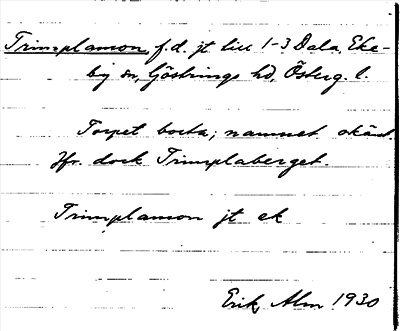 Trimplamon, f.d. jt till 1-3 Dala, Eke-
by sn, Göstrings hd, Österg. l.
Torpet borta; namnet okänt.
Jfr. dock Trimplaberget.
Trimplamon jt ek
Erik Alm 1930